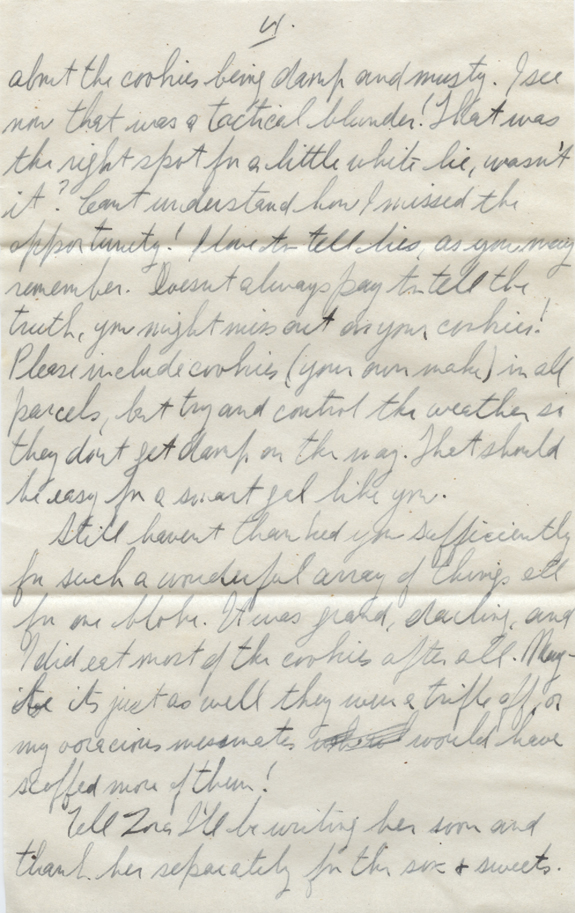 about the cookies being damp and musty. I see
now that was a tactical blunder! That was
the right spot for a little white lie, wasn't
it? Can't understand how I missed the
opportunity! I love to tell lies, as you may
remember. Doesn't always pay to tell the
truth, you might miss out on your cookies!
Please include cookies (your own make) in all
parcels, but try and control the weather so
they dont get damp on the way. That should
be easy for a smart gal like you.
Still haven't thanked you sufficiently
for such a wonderful array of things all
for one bloke. It was grand, darling, and
I did eat most of the cookies after all. May-
be its just as well they were a trifle off, or
my voracious messmates would have
scoffed more of them!
Tell Zora I'll be writing her soon and
thank her separately for the sox & sweets.